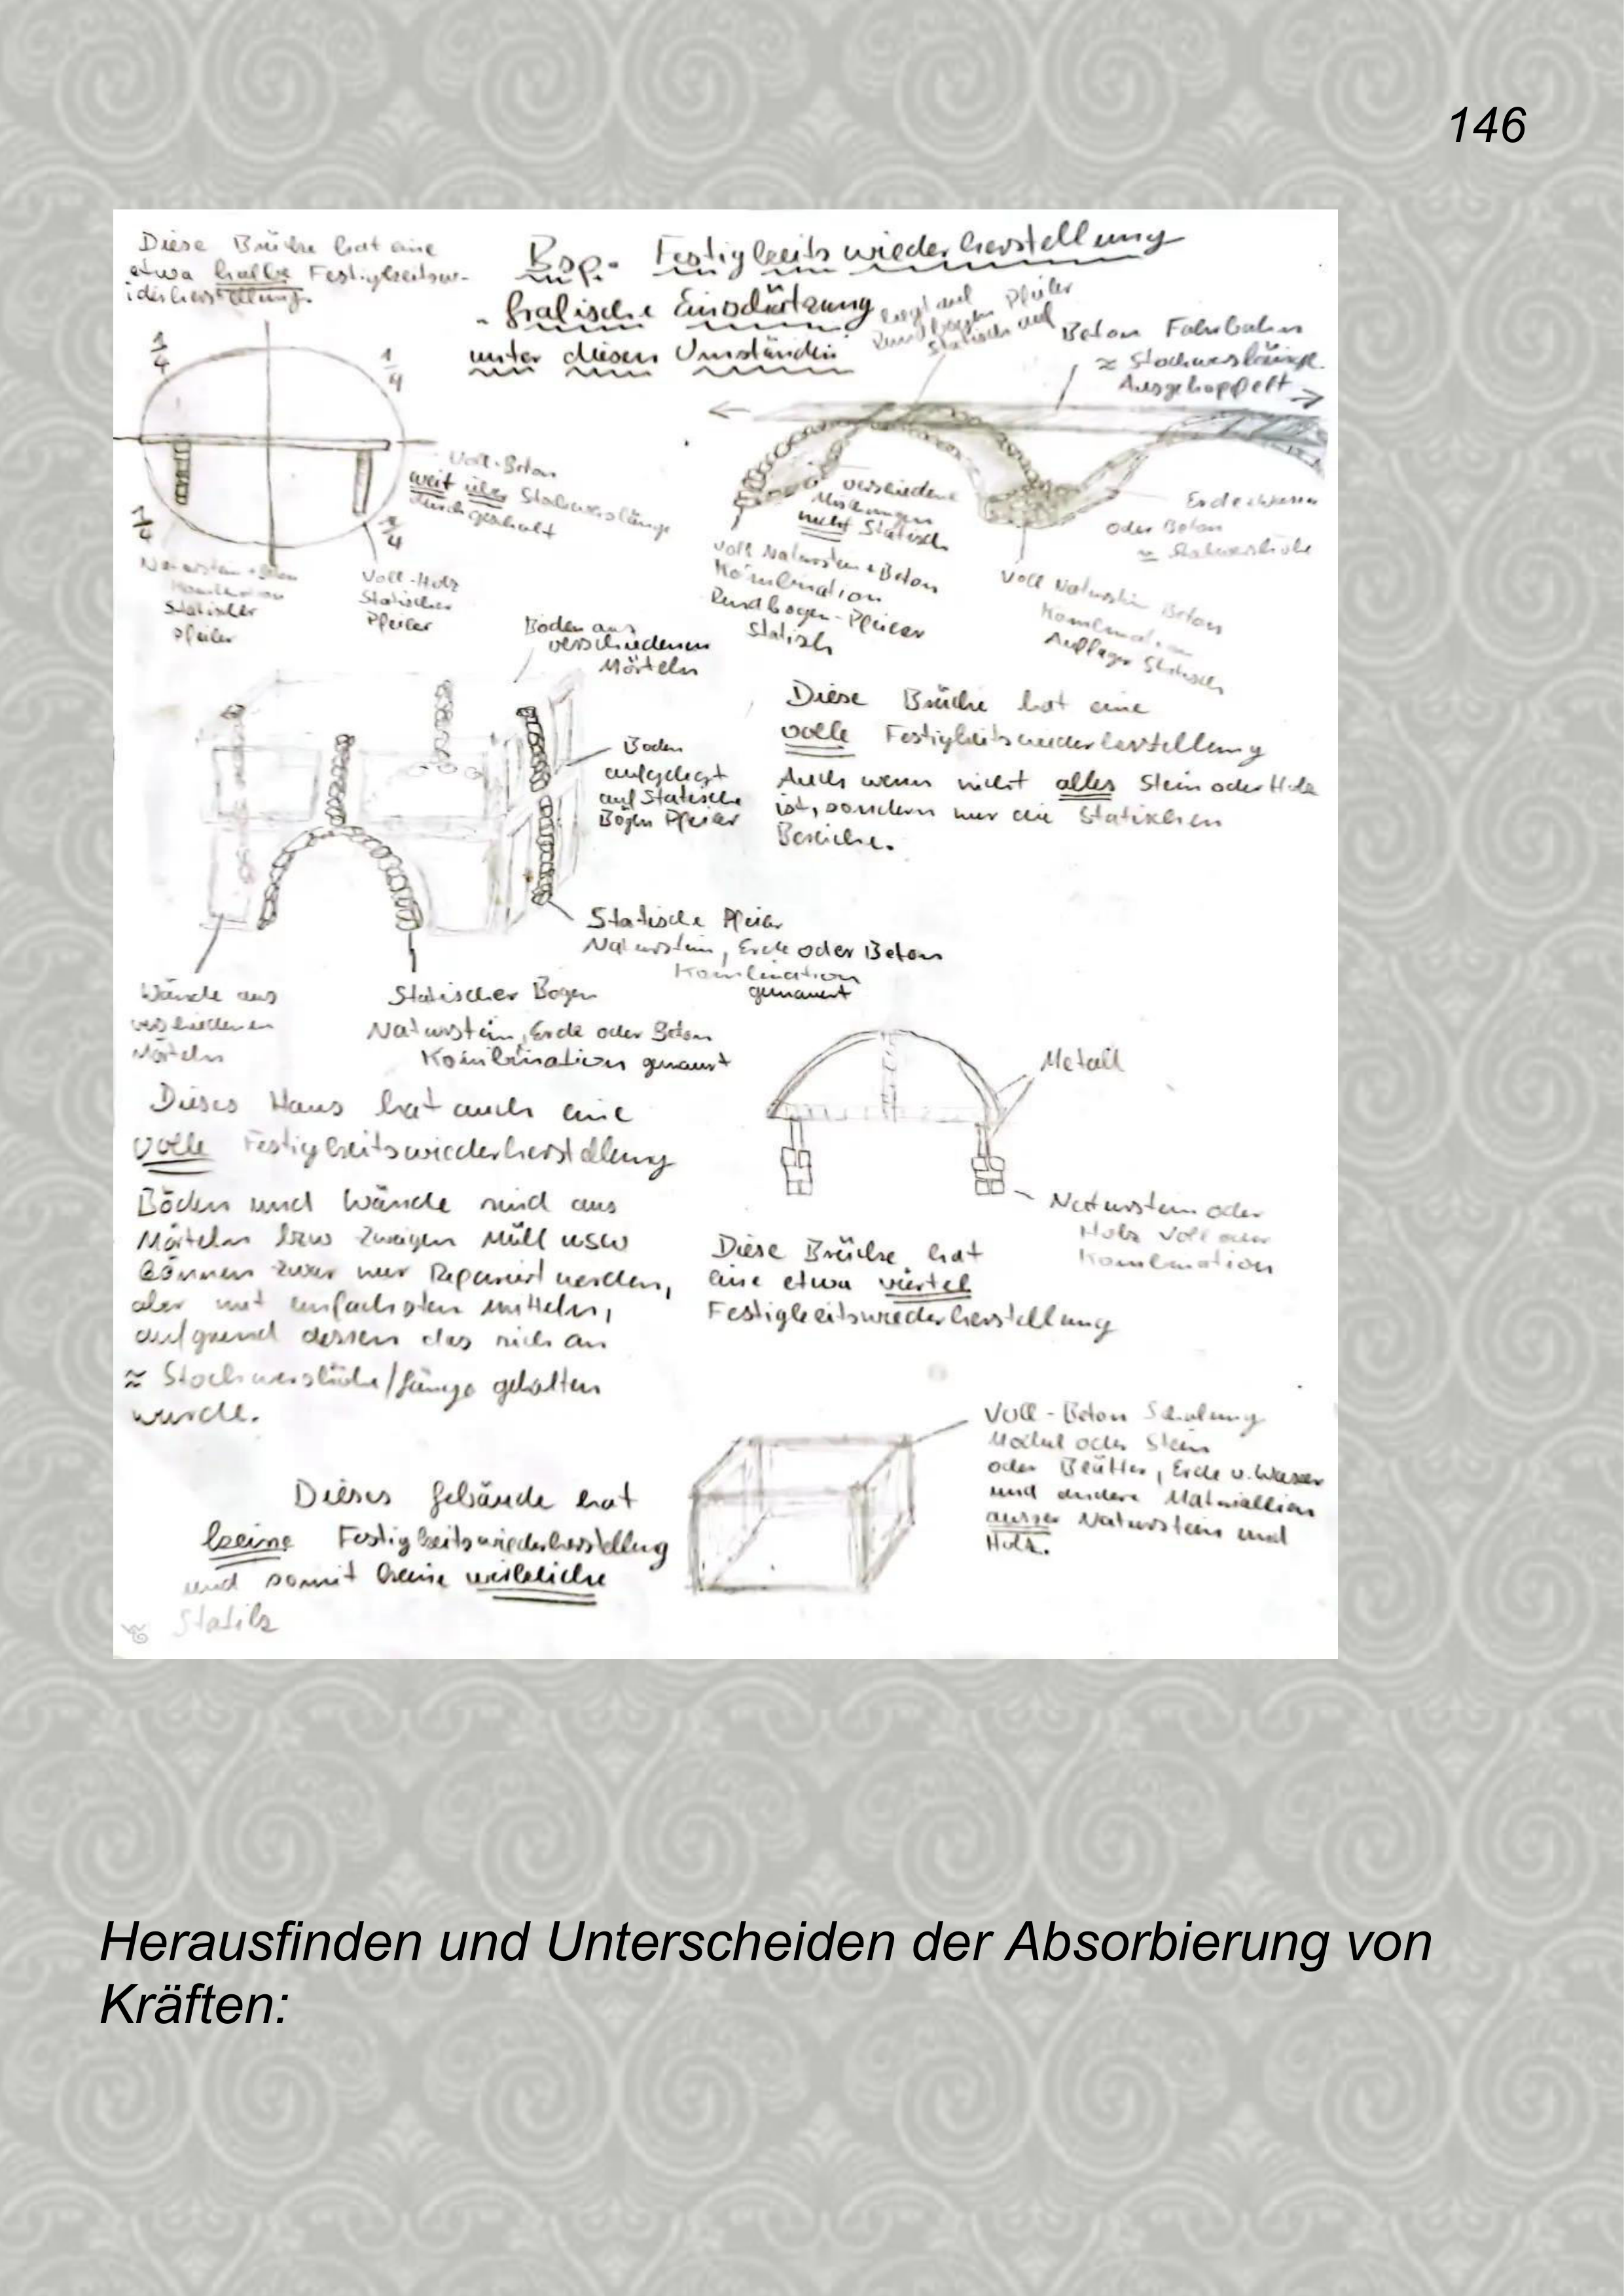 146
Diese Brücke hat eine
etwa halbe Festigkeitsw-
iderherstellung.
Bsp. Festigkeitswiederherstellung
unter diesen Umständen
liegt auf
Rundbogen Pfeiler
Statisch auf
Beton Fahrbahn
≈ Stockwerklänge
Ausgekoppelt
1/4
1/4
1/4
1/4
Voll-Beton
weit über Stockwerklänge
durchgeschalt
Naturstein + Beton
Kombination
Statischer
Pfeiler
Voll-Holz
Statischer
Pfeiler
verschiedene
Mischungen
nicht Statisch
Voll Naturstein + Beton
Kombination
Rundbogen-Pfeiler
Statisch
oder Beton
≈ Stockwerkhöhe
Voll Naturstein Beton
Kombination
Auflager Statisch
Boden aus
verschiedenen
Mörteln
Boden
aufgelegt
auf Statische
Bögen Pfeiler
Diese Brücke hat eine
volle Festigkeitswiederherstellung
Auch wenn nicht alles Stein oder Holz
ist, sondern nur die Statischen
Bereiche.
Statische Pfeiler
Naturstein, Erde oder Beton
Kombination
gemauert
Wände aus
verschiedenen
Mörteln
Statischer Bogen
Naturstein, Erde oder Beton
Kombination gemauert
Metall
Dieses Haus hat auch eine
volle Festigkeitswiederherstellung
Böden und Wände sind aus
Mörteln bzw Zweigen Müll usw
können zwar nur Repariert werden,
aber mit einfachsten Mitteln,
aufgrund dessen das sich an
≈ Stockwerkhöhe/länge gehalten
wurde.
Naturstein oder
Holz Voll oder
Kombination
Diese Brücke hat
eine etwa viertel
Festigkeitswiederherstellung
Voll-Beton Schalung
oder Stein
oder Blätter, Erde u. Wasser
und andere Materialien
ausser Naturstein und
Holz.
Dieses Gebäude hat
keine Festigkeitswiederherstellung
und somit keine wirkliche
Statik
Herausfinden und Unterscheiden der Absorbierung von
Kräften: